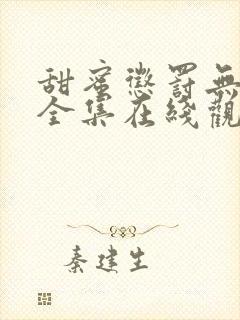 甜蜜懲罰無
全集在綫觀
秦建生